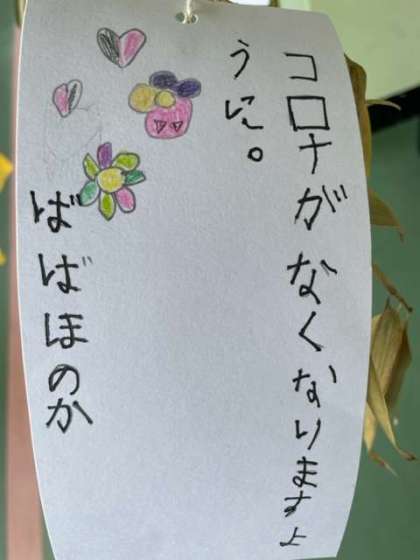 コロナがなくなりますよ
うに。
ばばほのか